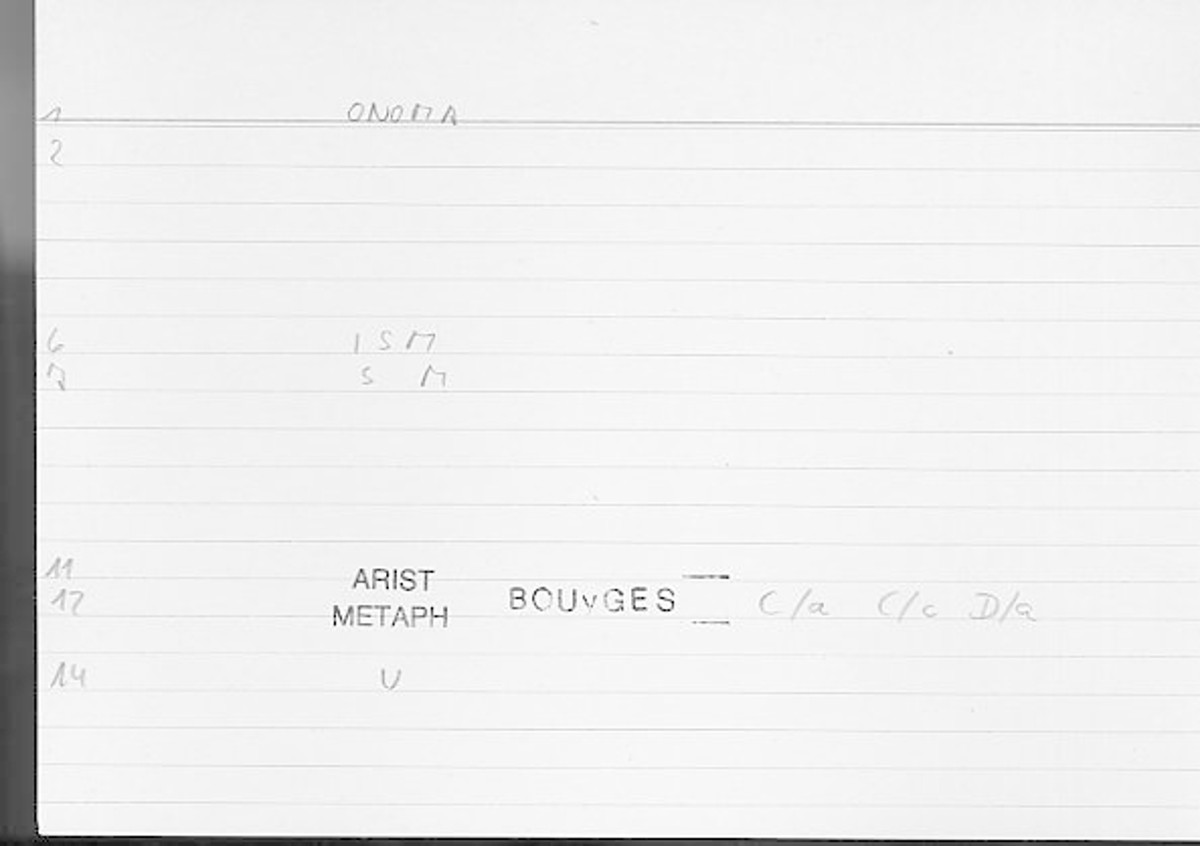 1 ONOMA
2
6 I S M
7 S M
11 ARIST
12 METAPH BOUvGES C/a C/c D/a
14 U